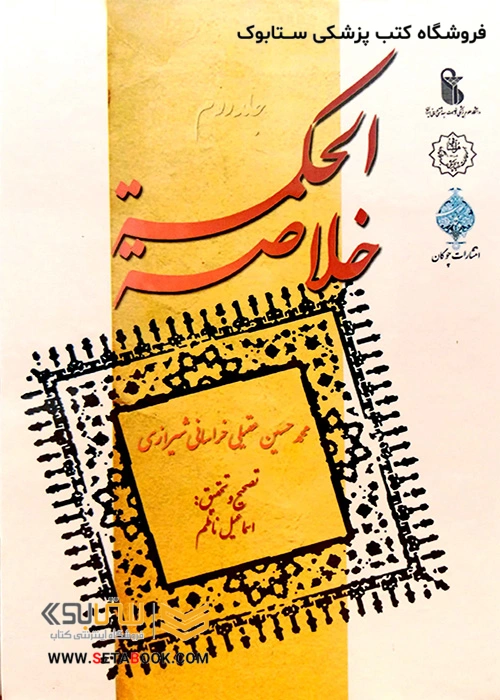 فروشگاه کتب پزشکی ستابوک
جلد دوم
خلاصة
الحکمة
انتشارات چوگان
محمد حسین عقیلی خراسانی شیرازی
تصحیح و تحقیق:
اسماعیل ناظم
ستابوک
فروشگاه اینترنتی کتاب
WWW.SETABOOK.COM